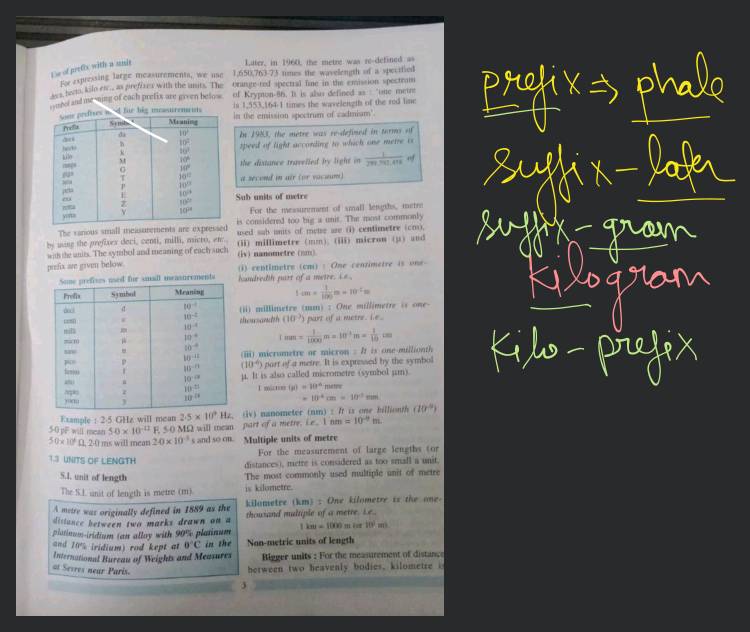 Use of prefix with a unit
For expressing large measurements, we use
deca, hecto, kilo etc., as prefixes with the units. The
symbol and meaning of each prefix are given below.
Some prefixes used for big measurements
Prefix Symbol Meaning
deca da 10¹
hecto h 10²
kilo k 10³
mega M 10⁶
giga G 10⁹
tera T 10¹²
peta P 10¹⁵
exa E 10¹⁸
zetta Z 10²¹
yotta Y 10²⁴
The various small measurements are expressed
by using the prefixes deci, centi, milli, micro, etc.,
with the units. The symbol and meaning of each such
prefix are given below.
Some prefixes used for small measurements
Prefix Symbol Meaning
deci d 10⁻¹
centi c 10⁻²
milli m 10⁻³
micro μ 10⁻⁶
nano n 10⁻⁹
pico p 10⁻¹²
femto f 10⁻¹⁵
atto a 10⁻¹⁸
zepto z 10⁻²¹
yocto y 10⁻²⁴
Example : 2·5 GHz will mean 2·5 × 10⁹ Hz,
5·0 pF will mean 5·0 × 10⁻¹² F, 5·0 MΩ will mean
5·0 × 10⁶ Ω, 2·0 ms will mean 2·0 × 10⁻³ s and so on.
1.3 UNITS OF LENGTH
S.I. unit of length
The S.I. unit of length is metre (m).
A metre was originally defined in 1889 as the
distance between two marks drawn on a
platinum-iridium (an alloy with 90% platinum
and 10% iridium) rod kept at 0°C in the
International Bureau of Weights and Measures
at Sevres near Paris.
Later, in 1960, the metre was re-defined as
1,650,763·73 times the wavelength of a specified
orange-red spectral line in the emission spectrum
of Krypton-86. It is also defined as : 'one metre
is 1,553,164·1 times the wavelength of the red line
in the emission spectrum of cadmium'.
In 1983, the metre was re-defined in terms of
speed of light according to which one metre is
the distance travelled by light in 1/299,792,458 of
a second in air (or vacuum).
Sub units of metre
For the measurement of small lengths, metre
is considered too big a unit. The most commonly
used sub units of metre are (i) centimetre (cm),
(ii) millimetre (mm), (iii) micron (μ) and
(iv) nanometre (nm).
(i) centimetre (cm) : One centimetre is one-
hundredth part of a metre. i.e.,
1 cm = 1/100 m = 10⁻² m
(ii) millimetre (mm) : One millimetre is one-
thousandth (10⁻³) part of a metre. i.e.,
1 mm = 1/1000 m = 10⁻³ m = 1/10 cm
(iii) micrometre or micron : It is one-millionth
(10⁻⁶) part of a metre. It is expressed by the symbol
μ. It is also called micrometre (symbol μm).
1 micron (μ) = 10⁻⁶ metre
= 10⁻⁴ cm = 10⁻³ mm.
(iv) nanometer (nm) : It is one billionth (10⁻⁹)
part of a metre. i.e., 1 nm = 10⁻⁹ m.
Multiple units of metre
For the measurement of large lengths (or
distances), metre is considered as too small a unit.
The most commonly used multiple unit of metre
is kilometre.
kilometre (km) : One kilometre is the one-
thousand multiple of a metre. i.e.,
1 km = 1000 m (or 10³ m).
Non-metric units of length
Bigger units : For the measurement of distance
between two heavenly bodies, kilometre is
3
prefix ⇒ phale
suffix - later
suffix - gram
Kilogram
Kilo - prefix